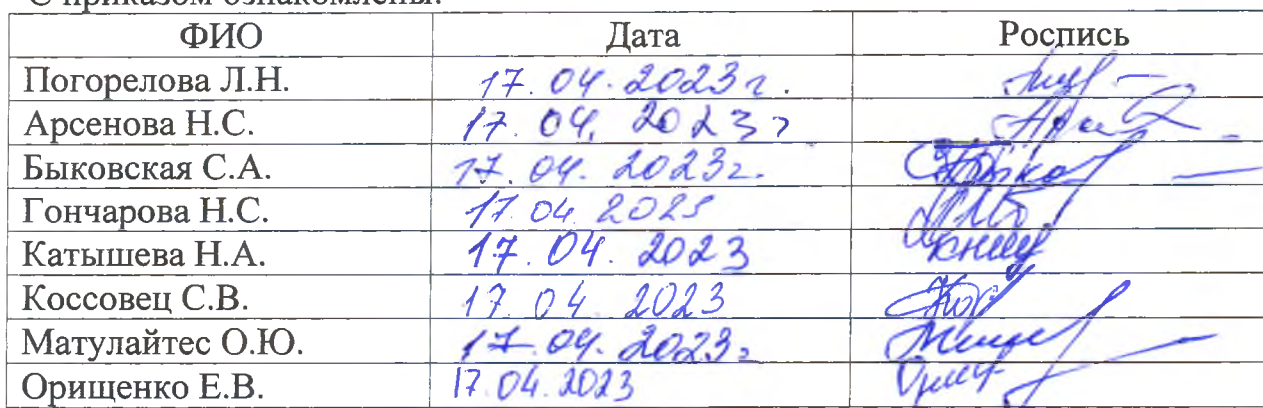 С приказом ознакомлены:
ФИО Дата Роспись
Погорелова Л.Н. 17.04.2023г.
Арсенова Н.С. 17.04.2023г
Быковская С.А. 17.04.2023г.
Гончарова Н.С. 17.04.2023
Катышева Н.А. 17.04.2023
Коссовец С.В. 17.04.2023
Матулайтес О.Ю. 17.04.2023г
Орищенко Е.В. 17.04.2023